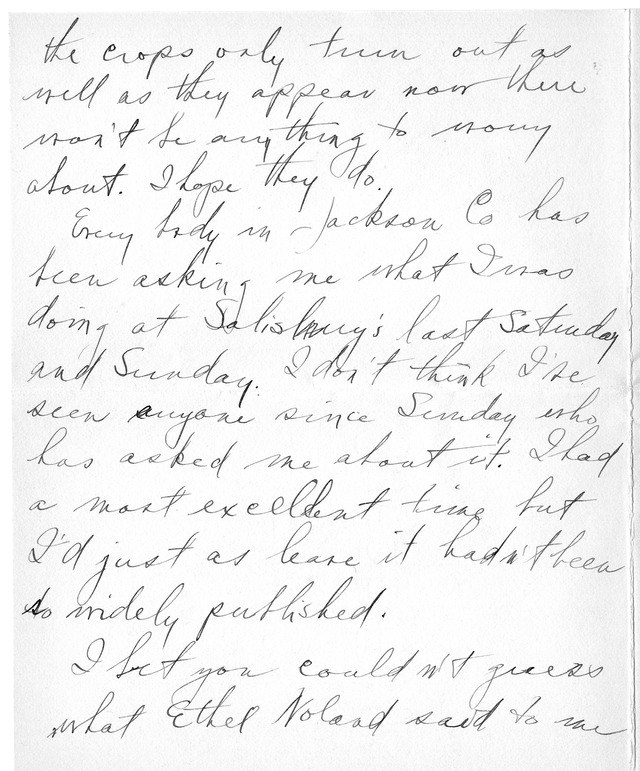 the crops only turn out as
well as they appear now there
won't be anything to worry
about. I hope they do.
Every body in Jackson Co has
been asking me what I was
doing at Salisbury's last Saturday
and Sunday. I don't think I've
seen anyone since Sunday who
has asked me about it. I had
a most excellent time but
I'd just as leave it hadn't been
so widely published.
I bet you couldn't guess
what Ethel Noland said to me